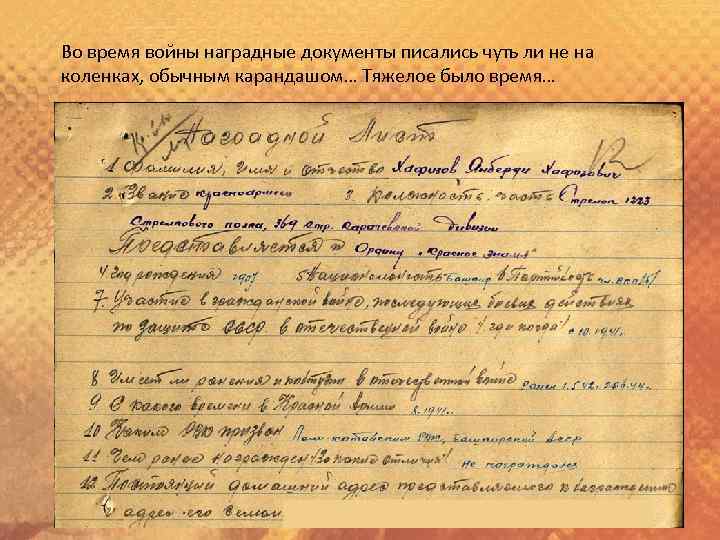 Во время войны наградные документы писались чуть ли не на
коленках, обычным карандашом... Тяжелое было время...
Наградной Лист
1 Фамилия, имя и отчество Хафизов Янберди Хафизович
2. Звание красноармеец 3. Должность, часть Стрелок 1223
Стрелкового полка, 369 стр. Карачевской Дивизии
Представляется к Ордену "Красное Знамя"
4. Год рождения 1907 5 Национальность башкир 6 Партийность чл. ВКП(б)
7. Участие в гражданской войне, последующие боевые действия
по защите СССР в отечественной войне / где когда / с 10.1941г.
8 Имеет ли ранения и контузии в отечественной войне Ранен 1.5.42г.
9 С какого времени в Красной Армии 8.1941г.
10 Каким РВК призван РВК, Башкирской АССР
11 Чем ранее награжден /за какие отличия/ не награждался
12 Постоянный домашний адрес представляемого к награждению
и адрес его семьи